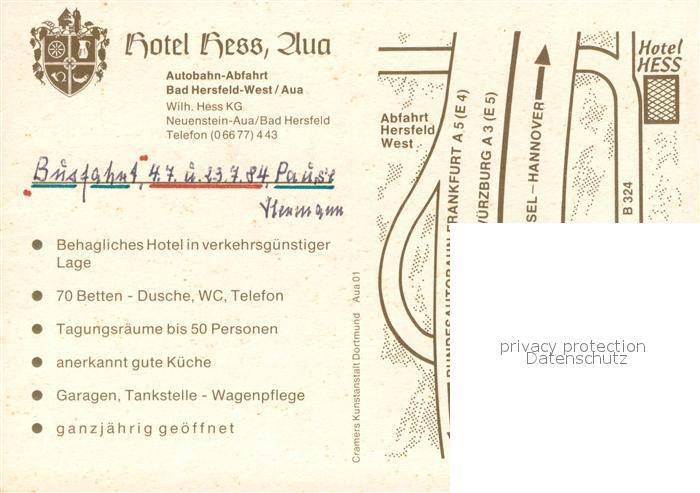 Hotel Hess, Aua
Autobahn-Abfahrt
Bad Hersfeld-West / Aua
Wilh. Hess KG
Neuenstein-Aua/Bad Hersfeld
Telefon (0 66 77) 4 43
"Busfahrt" 4.7. u. 23.7.84 Pause
Hermann
● Behagliches Hotel in verkehrsgünstiger
Lage
● 70 Betten - Dusche, WC, Telefon
● Tagungsräume bis 50 Personen
● anerkannt gute Küche
● Garagen, Tankstelle - Wagenpflege
● ganzjährig geöffnet
Cramers Kunstanstalt Dortmund Aua 01
Abfahrt
Hersfeld
West
BUNDESAUTOBAHN FRANKFURT A 5 (E 4)
WÜRZBURG A 3 (E 5)
SEL-HANNOVER
B 324
Hotel
HESS
privacy protection
Datenschutz